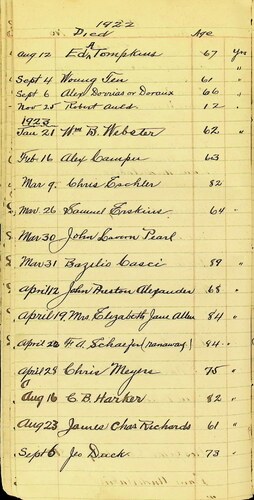 1922
Died Age
Aug 12 Ed. A Tompkins 67 yrs
Sept 4 Woung Fen 61 "
Sept 6 Alex Dorrias or Doraux 66 "
Nov 25 Robert Auld 12 "
1923
Jan 21 Wm B. Webster 62 "
Feb 16 Alex Camper 63
Mar 9. Chris Eschler 82
Mar. 26 Samuel Erskine 64 "
Mar 30 John Pearl
Mar 31 Bazilio Casci 89 "
April 12 John Preston Alexander 68 "
April 19, Mrs Elizabeth Jane Allen 84 "
April 20 F. A. Schaefer (runaway) 84 "
April 28 Chris Meyers 75 "
Aug 16 C. B. Harker 82 "
Aug 23 James Chas Richards 61 "
Sept 6 Jeo Dack. 73 "